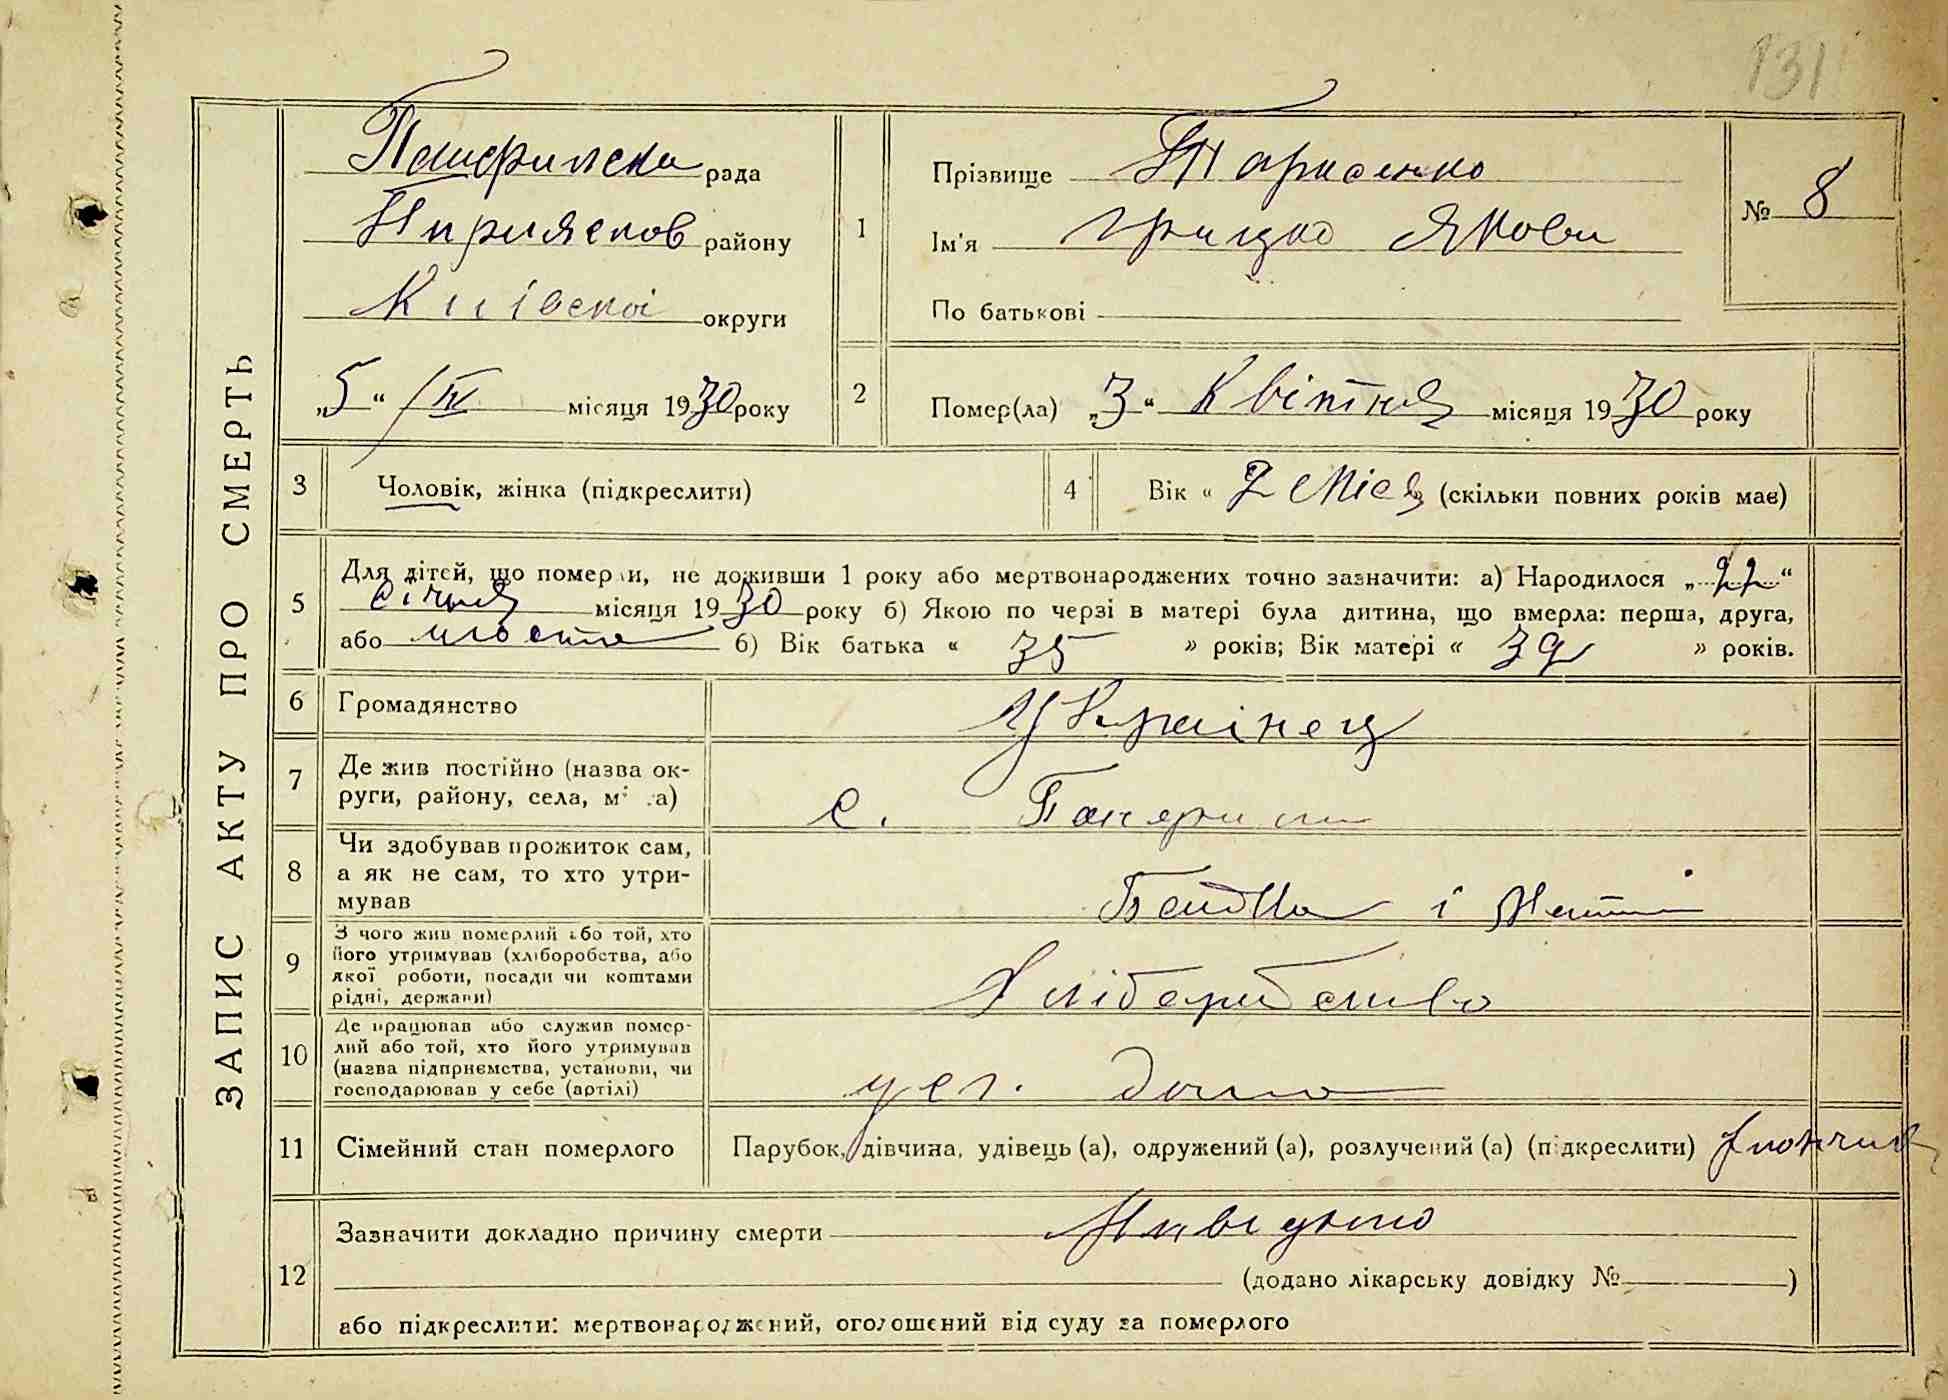 131
ЗАПИС АКТУ ПРО СМЕРТЬ
рада
району
Київскоі округи
„5“ IV місяця 1930 року
1
Прізвище Тарасенко
Ім'я Грицко Якови
По батькові
№ 8
2
Помер(ла) „3“ Квітня місяця 1930 року
3
Чоловік, жінка (підкреслити)
4
Вік « 2 Міся (скільки повних років має)
5
Для дітей, що померли, не доживши 1 року або мертвонароджених точно зазначити: а) Народилося „22“
Січня місяця 1930 року б) Якою по черзі в матері була дитина, що вмерла: перша, друга,
або шоста б) Вік батька « 35 » років; Вік матері « 39 » років.
6
Громадянство
Украінец
7
Де жив постійно (назва ок-
руги, району, села, м та)
с.
8
Чи здобував прожиток сам,
а як не сам, то хто утри-
мував
Батько і Мати
9
З чого жив померлий або той, хто
його утримував (хліборобства, або
якої роботи, посади чи коштами
рідні, держави)
Хліборобство
10
Де працював або служив помер-
лий або той, хто його утримував
(назва підприємства, установи, чи
господарював у себе (артілі)
дома
11
Сімейний стан померлого
Парубок, дівчина, удівець (а), одружений (а), розлучений (а) (підкреслити)
12
Зазначити докладно причину смерти
(додано лікарську довідку № )
або підкреслити: мертвонароджений, оголошений від суду за померлого